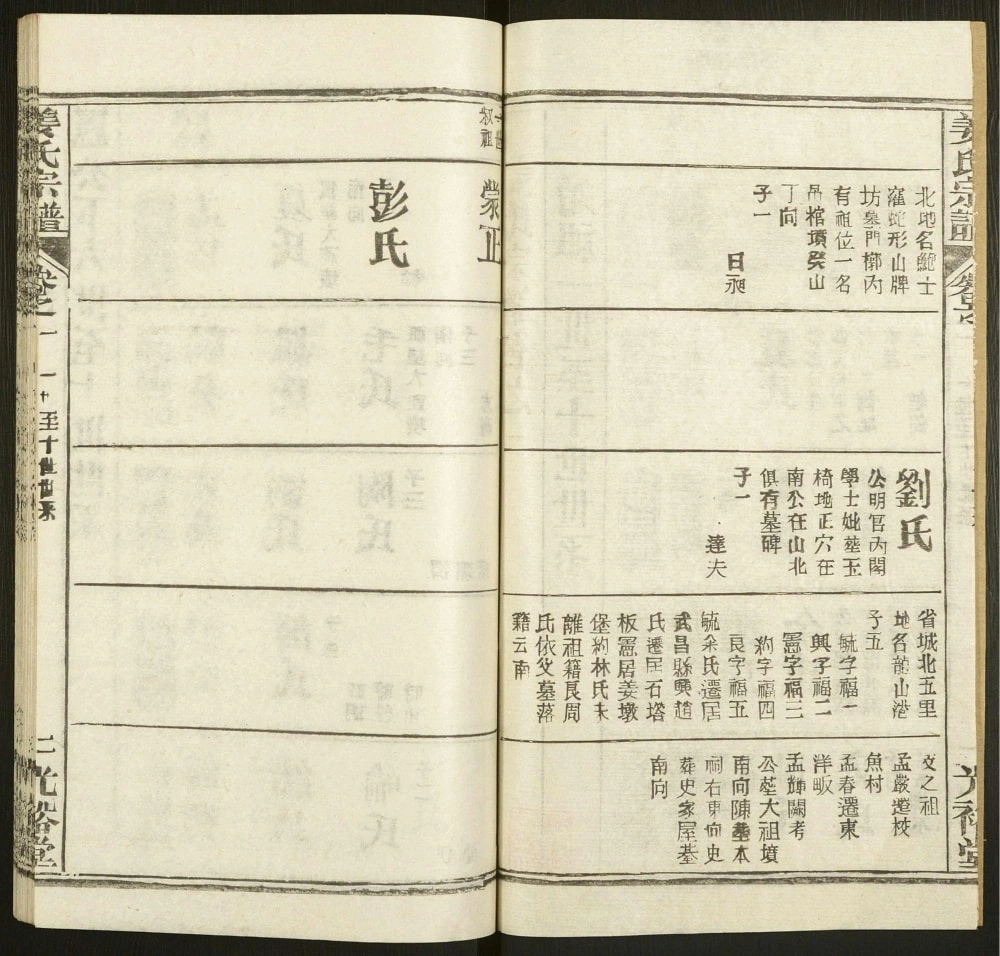 姜氏宗譜
北地名鮑士
窪蛇形山牌
坊墓門槨內
有祖位一名
吊棺墳癸山
丁向
子一
日昶
劉氏
公明官內閣
學士妣塟玉
椅地正穴在
南公在山北
俱有墓碑
子一
達夫
省城北五里
地名龍山港
子五
毓字福一
興字福二
憲字福三
約字福四
良字福五
毓朵氏遷居
武昌縣興趙
氏遷居石塔
板憲居姜墩
堡約林氏未
離祖籍良周
氏依父墓落
籍云南
文之祖
孟嚴遷校
魚村
孟春遷東
洋畈
孟輝闕考
公塟大祖墳
南向陳塟本
祠右東向史
葬史家屋基
南向
叔祖
蒙正
彭氏
姜氏宗譜
卷之一
至十世世系
二
光裕堂